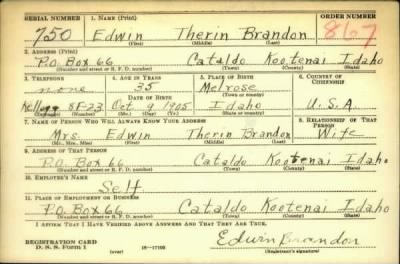 SERIAL NUMBER 1. NAME (Print) ORDER NUMBER
750 Edwin Therin Brandon 867
(First) (Middle) (Last)
2. ADDRESS (Print)
P.O. Box 66 Cataldo Kootenai Idaho
(Number and street or R. F. D. number) (Town) (County) (State)
3. TELEPHONE 4. AGE IN YEARS 5. PLACE OF BIRTH 6. COUNTRY OF CITIZENSHIP
none 35 Melrose
DATE OF BIRTH (Town or county)
Kellogg 5F-23 Oct 9 1905 Idaho U.S.A
(Exchange) (Number) (Mo.) (Day) (Yr.) (State or country)
7. NAME OF PERSON WHO WILL ALWAYS KNOW YOUR ADDRESS 8. RELATIONSHIP OF THAT PERSON
Mrs. Edwin Therin Brandon Wife
(Mr., Mrs., Miss) (First) (Middle) (Last)
9. ADDRESS OF THAT PERSON
P.O. Box 66 Cataldo Kootenai Idaho
(Number and street or R. F. D. number) (Town) (County) (State)
10. EMPLOYER'S NAME
Self
11. PLACE OF EMPLOYMENT OR BUSINESS
P.O. Box 66 Cataldo Kootenai Idaho
(Number and street or R. F. D. number) (Town) (County) (State)
I AFFIRM THAT I HAVE VERIFIED ABOVE ANSWERS AND THAT THEY ARE TRUE.
REGISTRATION CARD Edwin Brandon
D. S. S. Form 1 (over) 16—17105 (Registrant's signature)